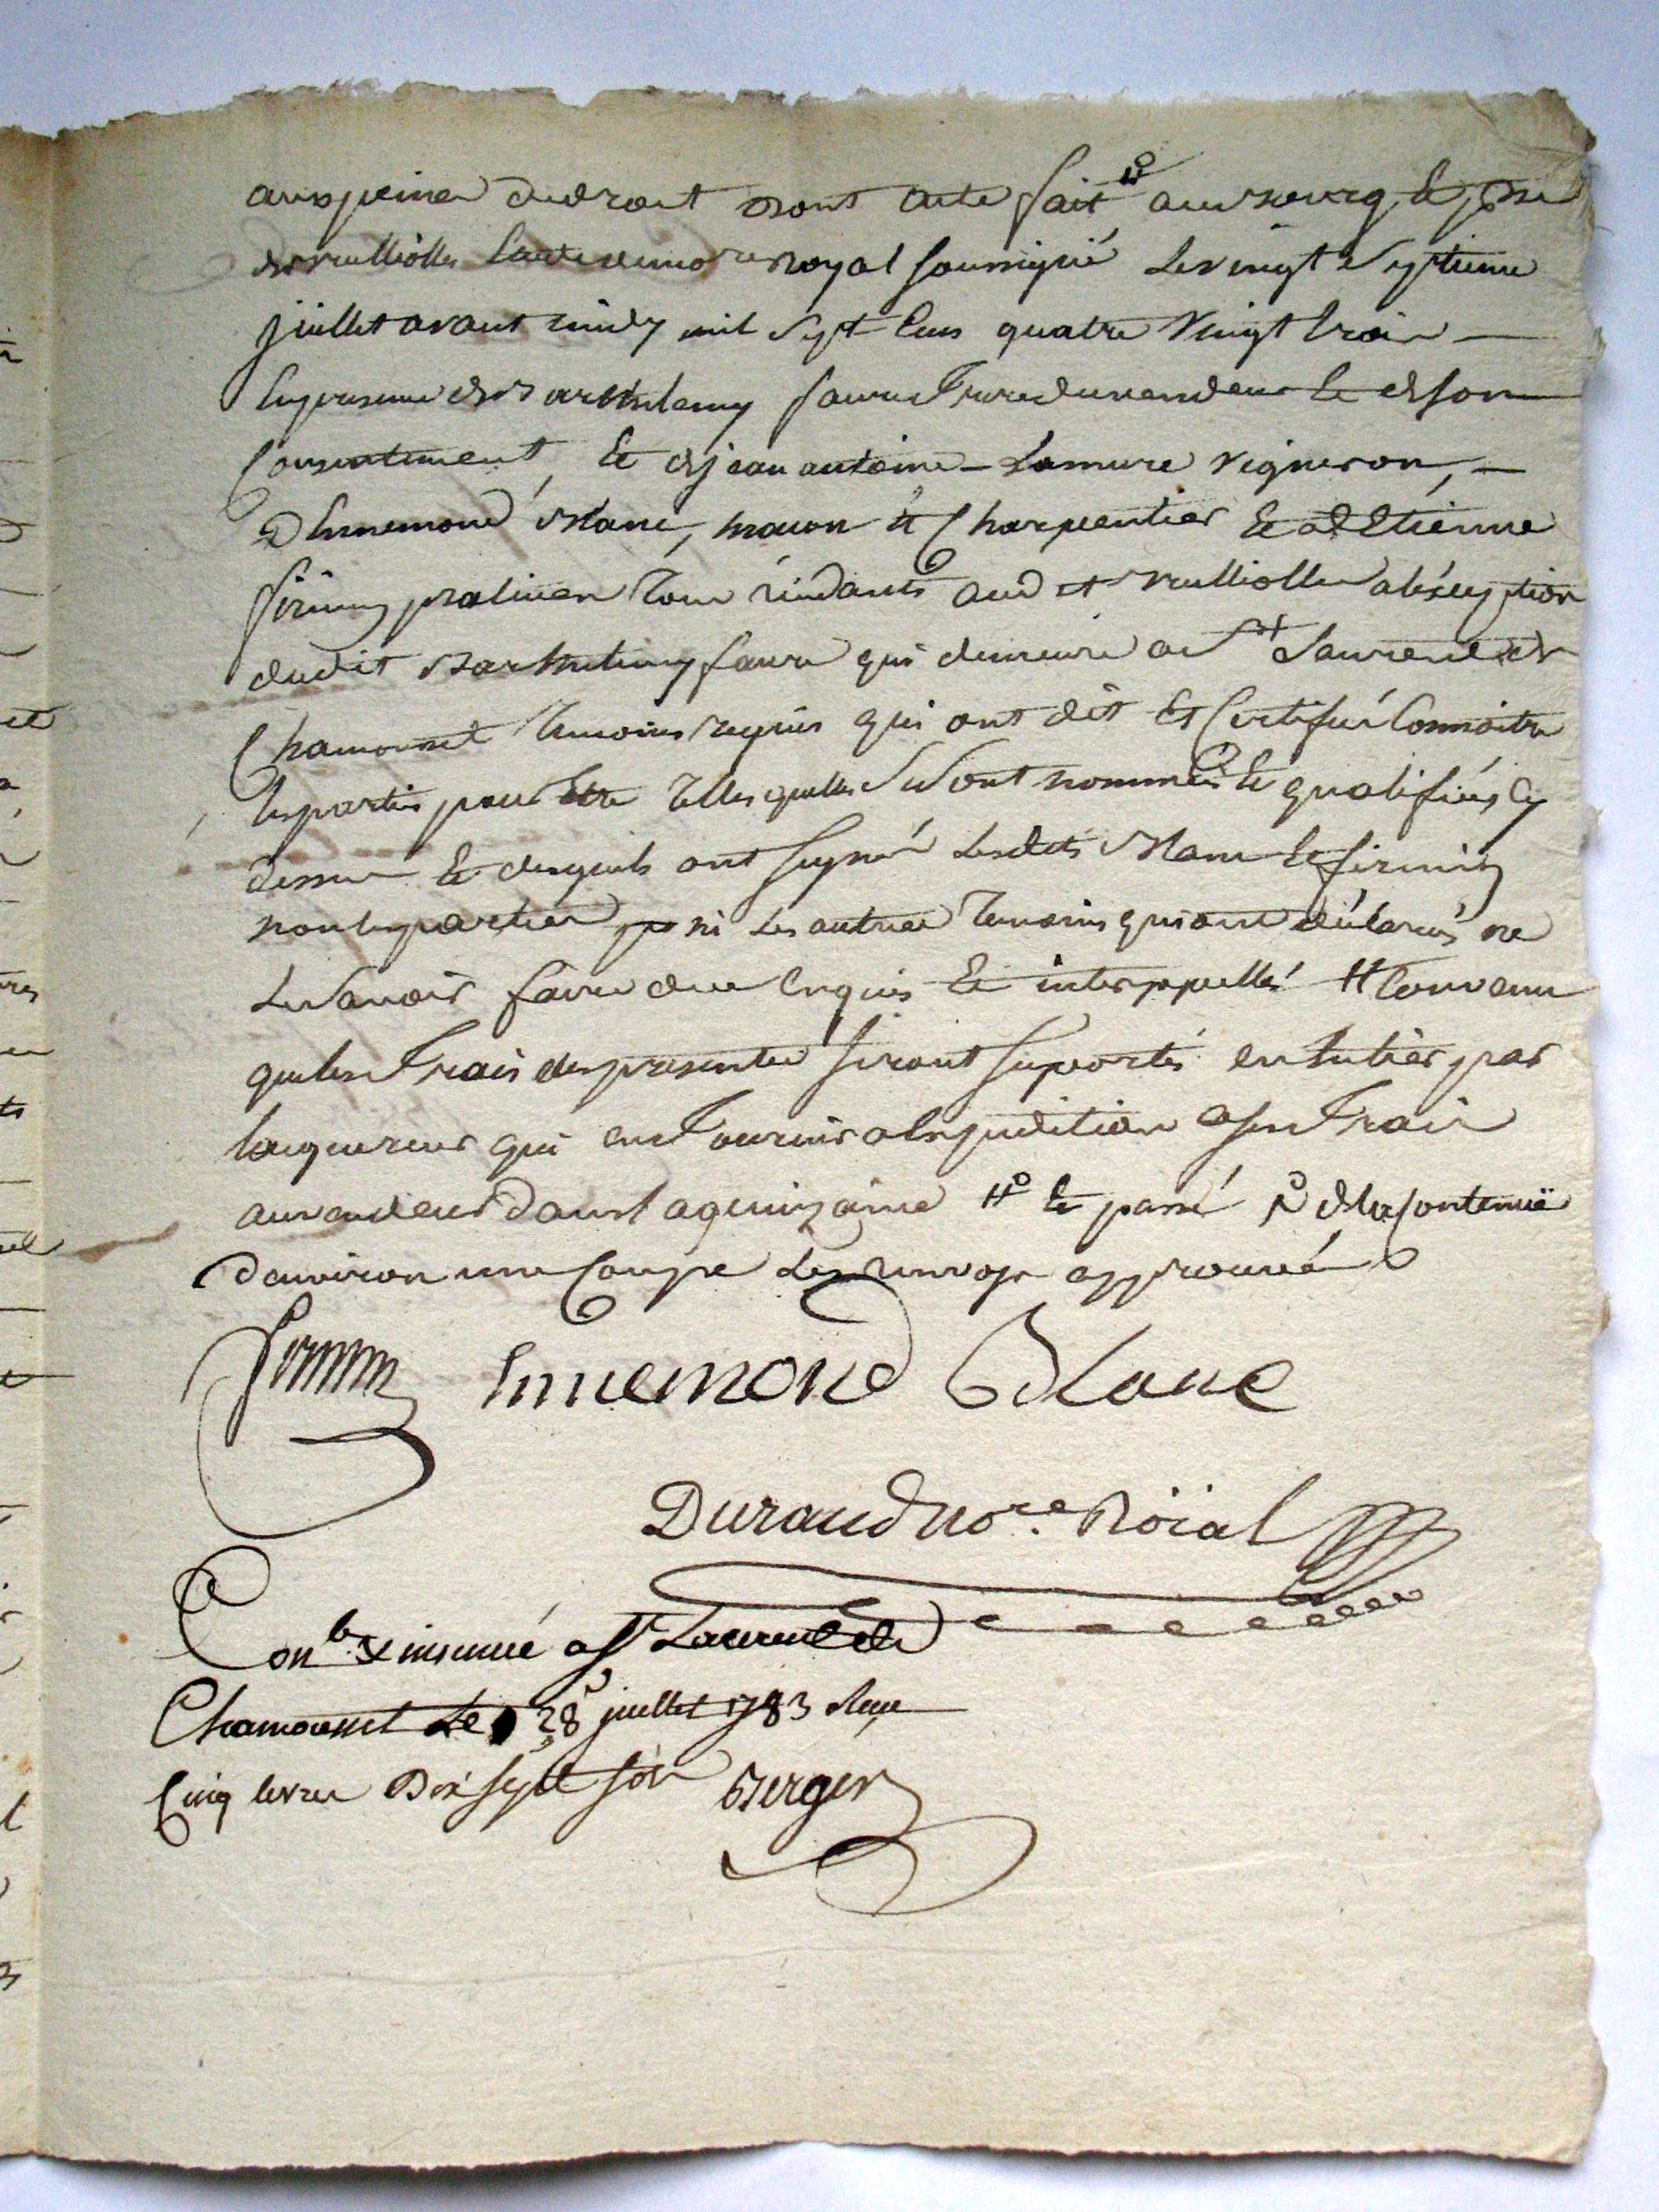 aux peines du droit dont acte fait # au bourg et psse
de brulliolles Etude du no.re royal soussigné Le vingt Septieme
juillet avant midy mil Sept Cens quatre Vingt trois
En presence de barthelemy faure frere du vendeur et de son
Consentement, et de jean antoine Lamure vigneron,
D'Ennemond blanc, macon et Charpentier et d'Etienne
firmin praticien tous residants aud.t brulliolles a l'exception
dudit barthelemy faure qui demeure a S.t Laurent de
Chamousset temoins requis qui ont dit et Certifié Connoitre
les parties pour Etre telles quelles se sont nommées et qualifiées cy
dessus et desquels ont signé Lesdits blanc et firmin
non les parties ni Les autres temoins qui ont déclarés ne
Le Savoir faire de ce Enquis et interppellés # Convenu
que les frais des presentes seront suportés en Entier par
lacquereur qui en fournira Expedition a ses frais
au vendeur dans la quinzaine # et passé de la contenuë
d'environ une Coupe Les renvois approuvé
firmin Ennemond Blanc
Durand no.re Roïal
Con.lé & insinué a S.t Laurent de
Chamousset Le 28 juillet 1783 Reçu
Cinq livres Dix sept sols Berger